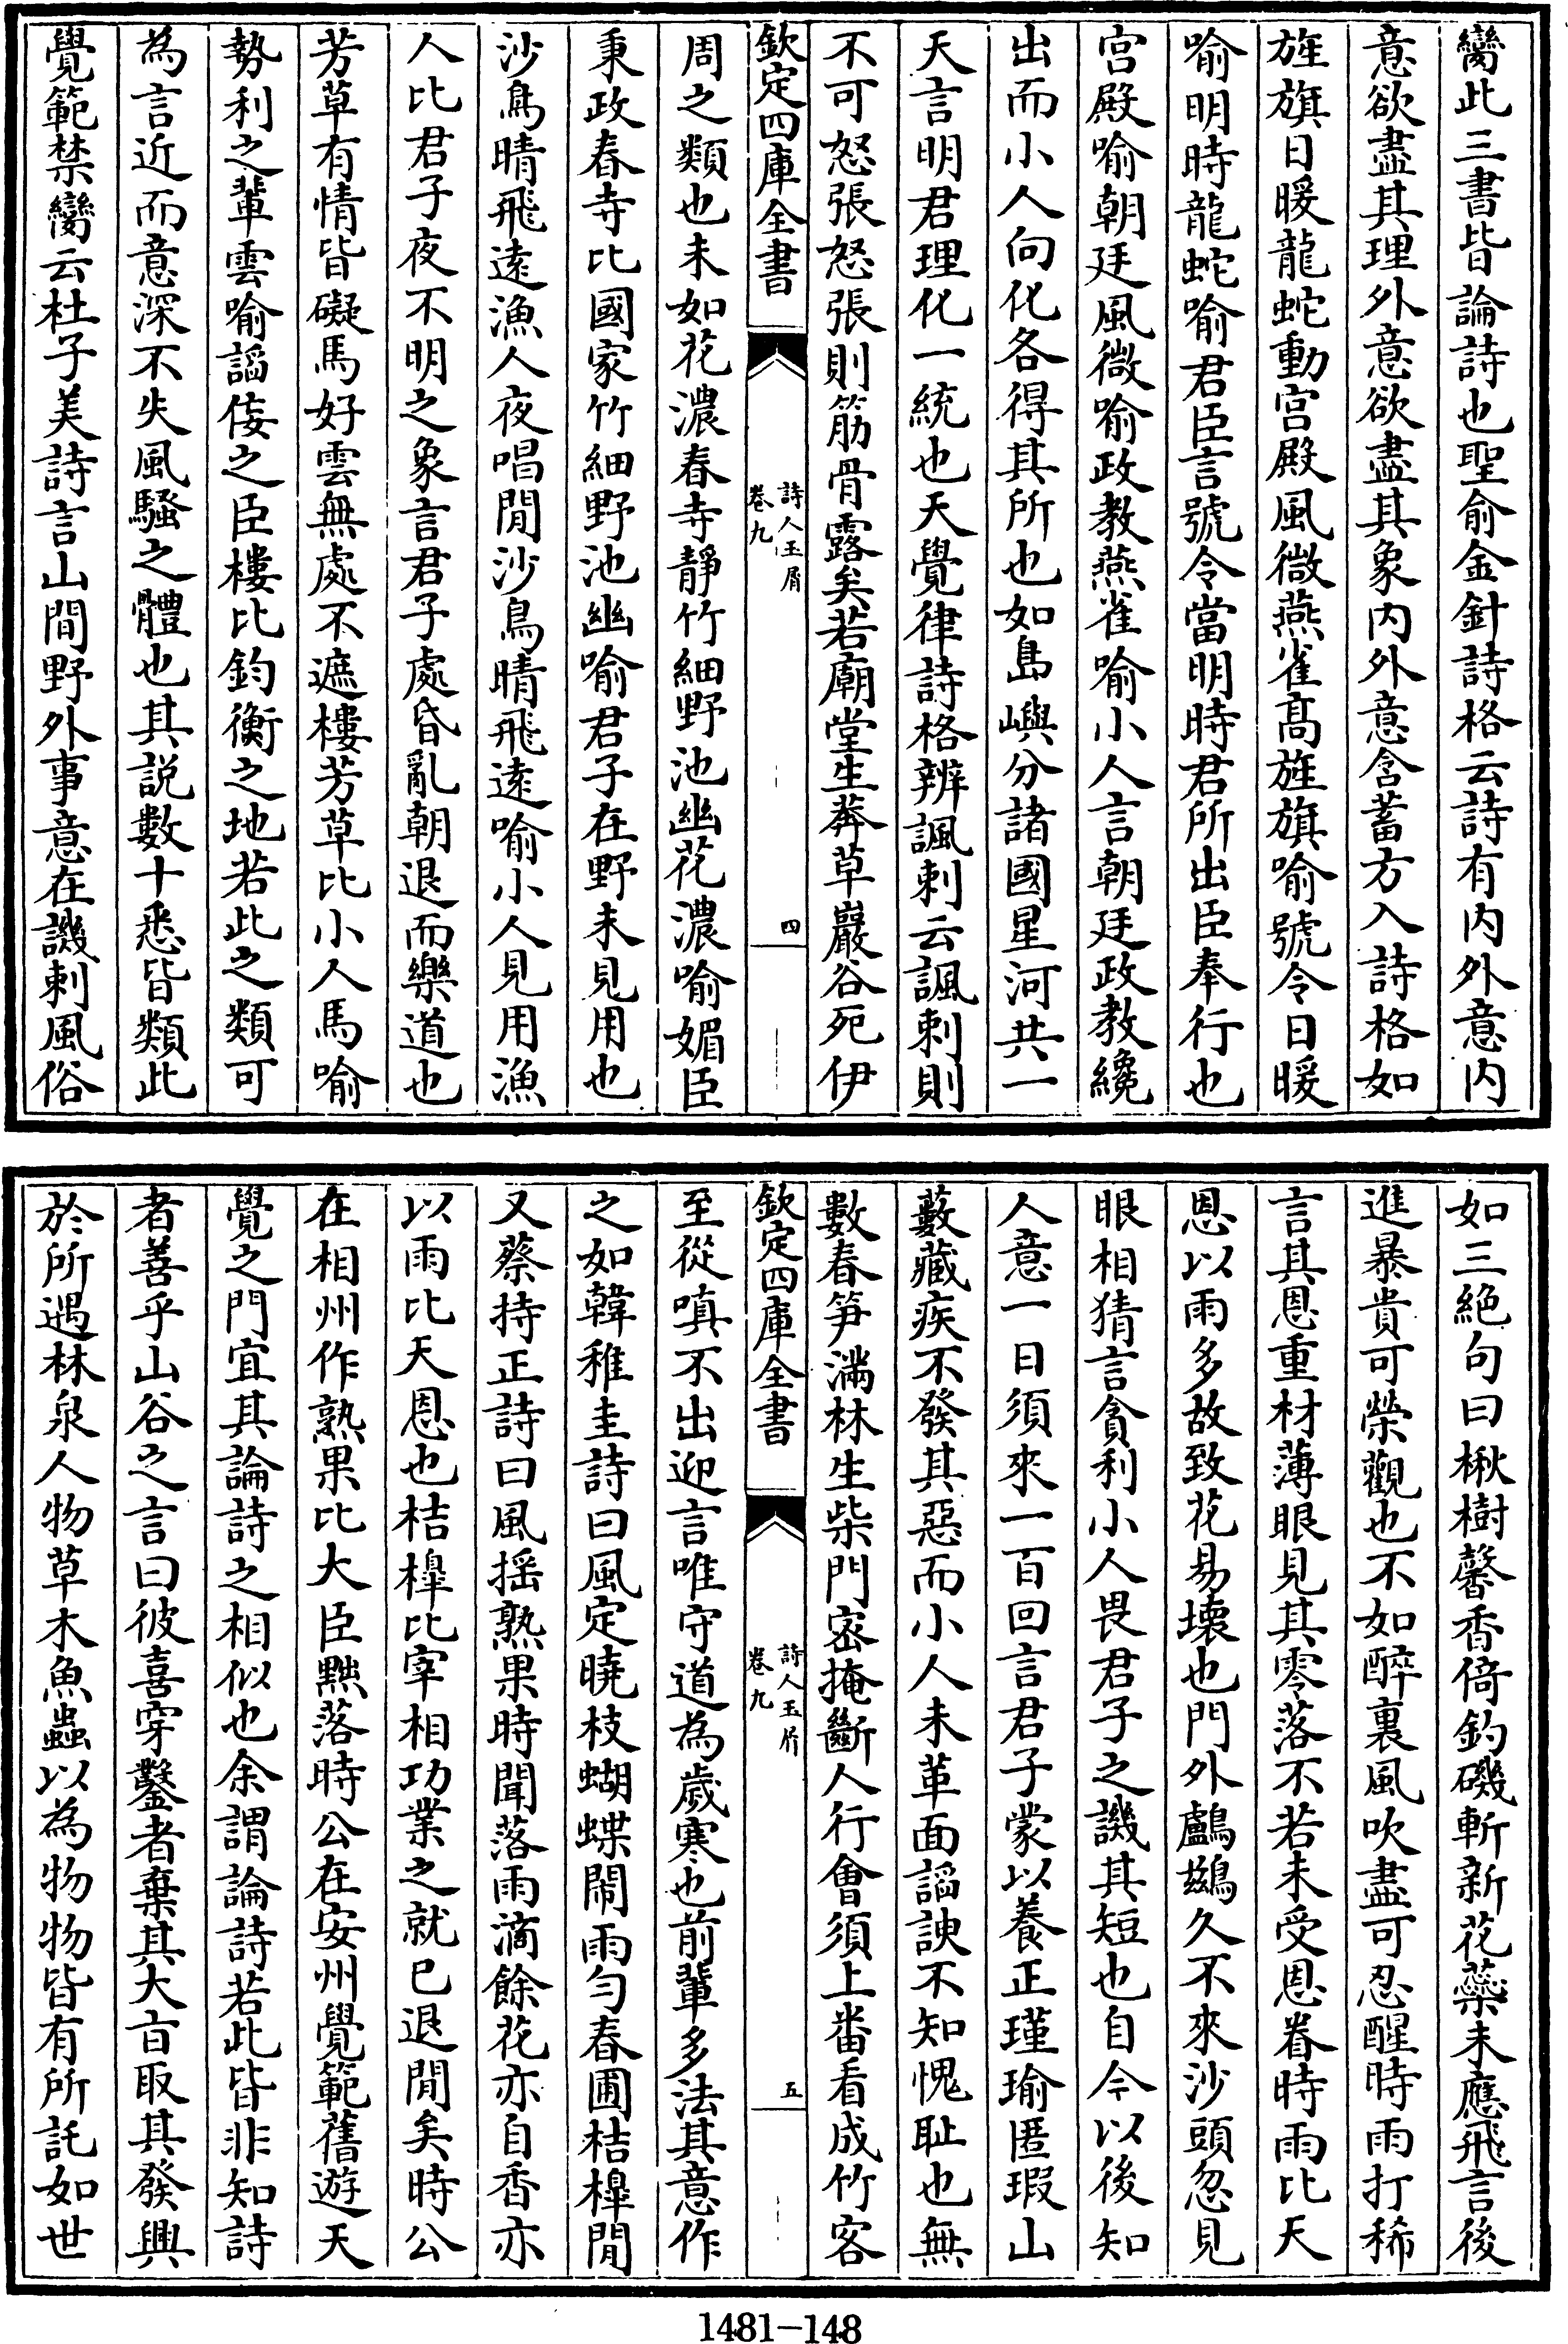 臠此三書皆論詩也聖俞金針詩格云詩有内外意内
意欲盡其理外意欲盡其象内外意含蓄方入詩格如
旌旗日暖龍蛇動宫殿風微燕雀高旌旗喻號令日暖
喻明時龍蛇喻君臣言號令當明時君所出臣奉行也
宫殿喻朝廷風微喻政教燕雀喻小人言朝廷政教纔
出而小人向化各得其所也如島嶼分諸國星河共一
天言明君理化一統也天覺律詩格辨諷刺云諷刺則
不可怒張怒張則筋骨露矣若廟堂生莽草巖谷死伊
欽定四庫全書
詩人玉屑
卷九
四
周之類也未如花濃春寺靜竹細野池幽花濃喻媚臣
秉政春寺比國家竹細野池幽喻君子在野未見用也
沙鳥晴飛遠漁人夜唱閒沙鳥晴飛遠喻小人見用漁
人比君子夜不明之象言君子處昏亂朝退而樂道也
芳草有情皆礙馬好雲無處不遮樓芳草比小人馬喻
勢利之輩雲喻謟侫之臣樓比鈞衡之地若此之類可
為言近而意深不失風騷之體也其説數十悉皆類此
覺範禁臠云杜子美詩言山間野外事意在譏刺風俗
如三絶句曰楸樹馨香倚釣磯斬新花蘂未應飛言後
進暴貴可榮觀也不如醉裏風吹盡可忍醒時雨打稀
言其恩重材薄眼見其零落不若未受恩眷時雨比天
恩以雨多故致花易壞也門外鸕鷀久不來沙頭忽見
眼相猜言貪利小人畏君子之譏其短也自今以後知
人意一日須來一百回言君子蒙以養正瑾瑜匿瑕山
藪藏疾不發其惡而小人未革面謟諛不知愧耻也無
數春笋滿林生柴門密掩斷人行會須上番看成竹客
欽定四庫全書
詩人玉屑
卷九
五
至從嗔不出迎言唯守道為歲寒也前輩多法其意作
之如韓稚圭詩曰風定曉枝蝴蝶鬧雨匀春圃桔橰閒
又蔡持正詩曰風摇熟果時聞落雨滴餘花亦自香亦
以雨比天恩也桔橰比宰相功業之就已退閒矣時公
在相州作熟果比大臣黜落時公在安州覺範舊遊天
覺之門宜其論詩之相似也余謂論詩若此皆非知詩
者善乎山谷之言曰彼喜穿鑿者棄其大㫖取其發興
於所遇林泉人物草木魚蟲以為物物皆有所託如世
1481-148